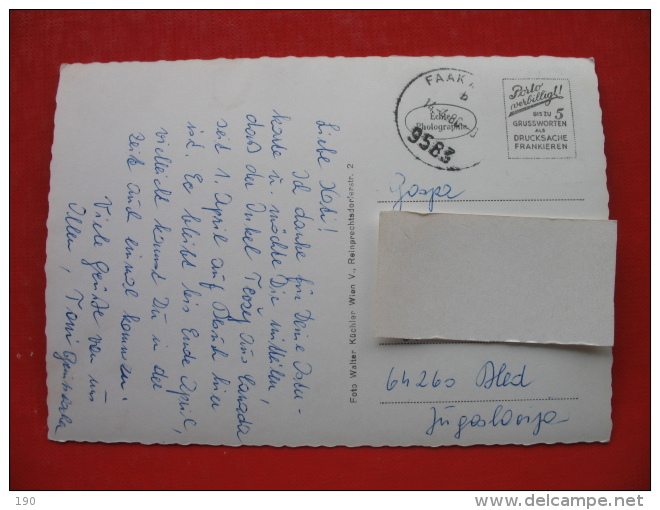 Liebe
Ich danke für Deine Oster-
karte u. möchte Dir mitteilen,
daß der Onkel aus Canada
seit 1. April auf Besuch hier
ist. Er bleibt bis Ende April,
vielleicht kannst Du in der
Zeit auch einmal kommen.
Viele Grüße von uns
Allen, Toni
Foto Walter Küchler Wien V., Reinprechtsdorferstr. 2
FAAK
b
Echte
Photographie
9583
Porto
verbilligt!
BIS ZU 5
GRUSSWORTEN
ALS
DRUCKSACHE
FRANKIEREN
Gospa
64260 Bled
Jugoslavija
190
delcampe.net